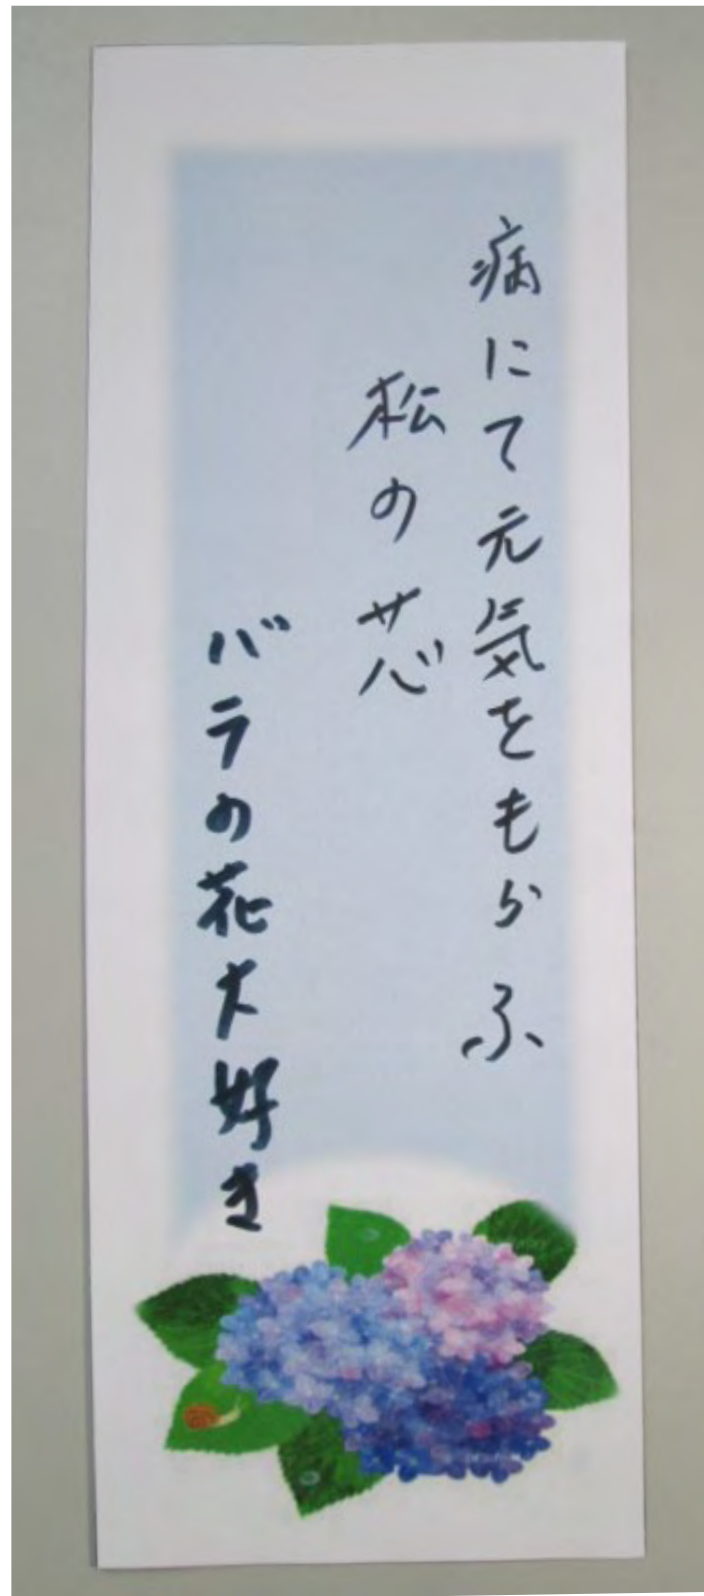 病にて元気をもらふ
松の芯
バラの花大好き